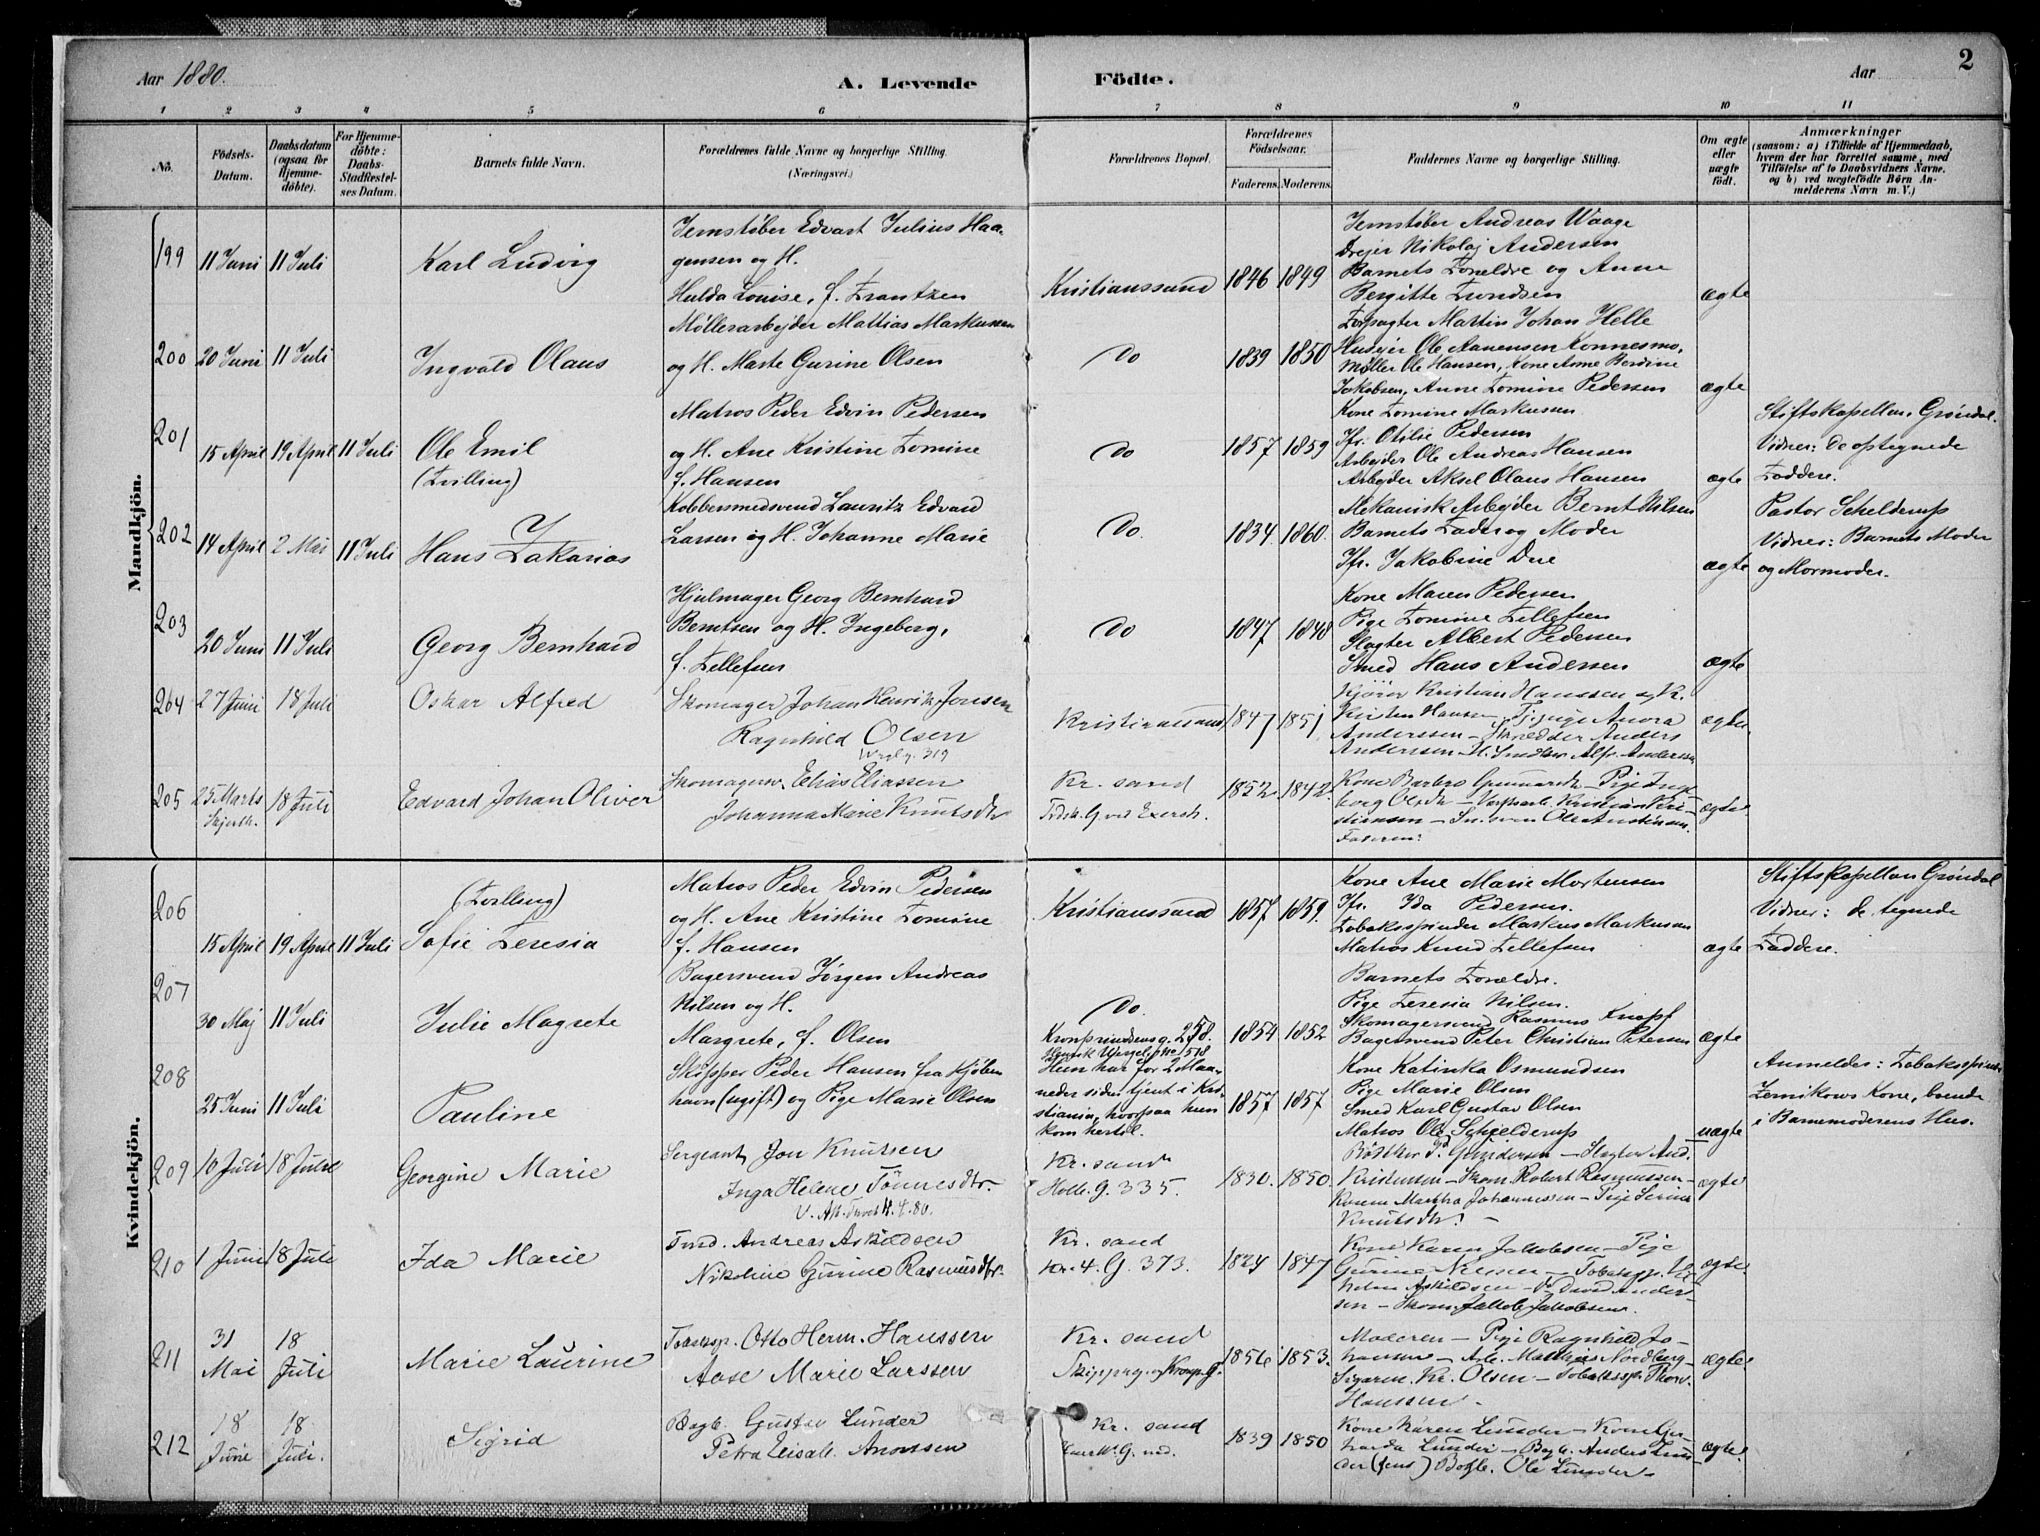 Aar 1880.
A. Levende
Födte.
Aar
2
1 2 3 4 5 6 7 8 9 10 11
No.
Födsels-Datum.
Daabsdatum (ogsaa for Hjemmedöbte).
For Hjemmedöbte: Daabs-Stadfæstelses Datum.
Barnets fulde Navn.
Forældrenes fulde Navne og borgerlige Stilling.
(Næringsvei.)
Forældrenes Bopæl.
Forældrenes Födselsaar.
Faderens. Moderens.
Faddernes Navne og borgerlige Stilling.
Om ægte eller uægte födt.
Anmærkninger
(saasom: a) i Tilfælde af Hjemmedaab,
hvem der har forrettet samme, med
Tilföielse af to Daabsvidners Navne,
og b) ved uægtefödte Börn Anmelderens Navn m. V.)
Mandkjön.
199 11 Juni 11 Juli
Karl Ludvig
Jernstøber Edvart Julius Haagensen og H.
Hulda Louise, f. Frantzen
Kristianssund 1846 1849
Jernstøber Andreas Waage
Drejer Nikolaj Andersen
Barnets Forældre og Anne
Bergitte
ægte
200 20 Juni 11 Juli
Ingvald Olaus
Møllerarbejder Mattias Markussen
og H. Marte Gurine Olsen
Do 1839 1850
Forpagter Martin Johan Helle
Husejer Ole Aanensen Konnesmo,
Møller Ole Hansen, Kone Anne Berdine
Jakobsen, Anne Tomine Pedersen
ægte
201 15 April 19 April 11 Juli
Ole Emil
(Tvilling)
Matros Peder Edvin Pedersen
og H. Ane Kristine Tomine
f. Hansen
Do 1857 1859
Kone Tomine Markussen
Jfr. Otilie Pedersen
Arbejder Ole Andreas Hansen
Arbejder Aksel Olaus Hansen
ægte
Stiftskapellan Grøndal.
Vidner: de optegnede
Faddere.
202 14 April 2 Mai 11 Juli
Hans Zakarias
Kobbersmedsvend Lauritz Edvard
Larsen og H. Johanne Marie
Do. 1834 1860
Mekanisk Arbejder Bernt Nilsen
Barnets Fader og Moder
Jfr. Jakobine Due
ægte
Pastor Schelderup
Vidner: Barnets Moder
og Mormoder.
203 20 Juni 11 Juli
Georg Bernhard
Hjulmager Georg Bernhard
Berntsen og H. Ingeborg,
f. Tellefsen
Do 1847 1848
Kone Maren Pedersen
Pige Tomine Tellefsen
Slagter Albert Pedersen
Smed Hans Andersen
ægte
204 27 Juni 18 Juli
Oskar Alfred
Skomager Johan Henrik Jensen
Ragnhild Olsen
319
Kristianssand 1847 1851
Kristian Hanssen og K.
Kirsten Hansen
Anderssen – Skrædder Anders
Anderssen
ægte
205 25 Marts 18 Juli
Edvard Johan Oliver
Skomagersv. Elias Eliassen
Johanna Marie Knutsdtr
Kr. sand
1852 1842
Kone Barbro Gunnarsdtr – Pige Ingeborg Olsdtr – Kristian Kristiansen –
Faderen.
ægte
Kvindekjön.
206 15 April 19 April 11 Juli
(Tvilling)
Sofie Teresia
Matros Peder Edvin Pedersen
og H. Ane Kristine Tomine
f. Hansen
Kristianssund 1857 1859.
Kone Ane Marie Mortensen
Jfr. Ida Pedersen.
Tobaksspinder Markus Markussen
Matros Knud Tellefsen
ægte
Stiftskapellan Grøndal
Vidner: de tegnede
Faddere.
207 30 Maj 11 Juli
Julie Magrete
Bagersvend Jørgen Andreas
Nilsen og H.
Margrete, f. Olsen
Do.
Kronprindsensg. 258.
1854 1852
Barnets Forældre.
Pige Teresia Nilsen.
Skomagersvend Rasmus Knopf
Bagersvend Peter Christian Petersen
ægte
208 25 Juni 11 Juli
Pauline
Skipper Peder Hansen fra Kjøbenhavn (ugift) og Pige Marie Olsen
Henrik Wergel. No 518
Hun har for 2 Maaneder siden tjent i Kristiania, hvorpaa hun
kom hertil.
1857 1857
Kone Katinka Osmundsen
Pige Marie Olsen
Smed Karl Gustav Olsen
Matros Ole Schjelderup
uægte
Anmelder: Tobaksspinder
Kone, boende
i Barnemoderens Hus.
209 10 Juli 18 Juli
Georgine Marie
Sergeant Jon Knutsen
Inga Helene Tönnesdtr.
Kr. sand
Holb. G. 335.
1830. 1850.
Bödtker P. Gundersen – Slagter And.
Kristensen – Skom. Robert Rasmussen –
Konen Martha Johannessen – Pige Serine
Knutsdtr. –
ægte
210 1 Juni 18 Juli
Ida Marie
Andreas Askildsen
Nikoline Gurine Rasmusdtr.
Kr. sand
4. G. 373.
1824 1847
Kone Karen Jakobsen – Pige
Gurine Nielsen – Tobakssp. Vilhelm Askildsen – David Anderssen – Skom. Jakob Jakobsen.
ægte.
211 31 Mai 18 Juli
Marie Laurine
Tobakssp. Otto Herm. Hanssen
Aase Marie Larssen
Kr. sand
Skipperg. og Kronpr. G.
1856 1853.
Moderen – Pige Ragnhild Johansen – Arb. Mathias Nordberg –
Sigarm. Kr. Olsen – Tobakssp. Thorv.
Hanssen.
ægte.
212 18 Juni 18 Juli.
Sigrid
Bogb. Gustav Lunder
Petra Elisab. Aronssen
Kr. sand
1839 1850
Kone Karen Lunder – Kone Gerharda Lunder – Bogb. Anders Lunder (jens) Bogb. Ole Lunder –
ægte.